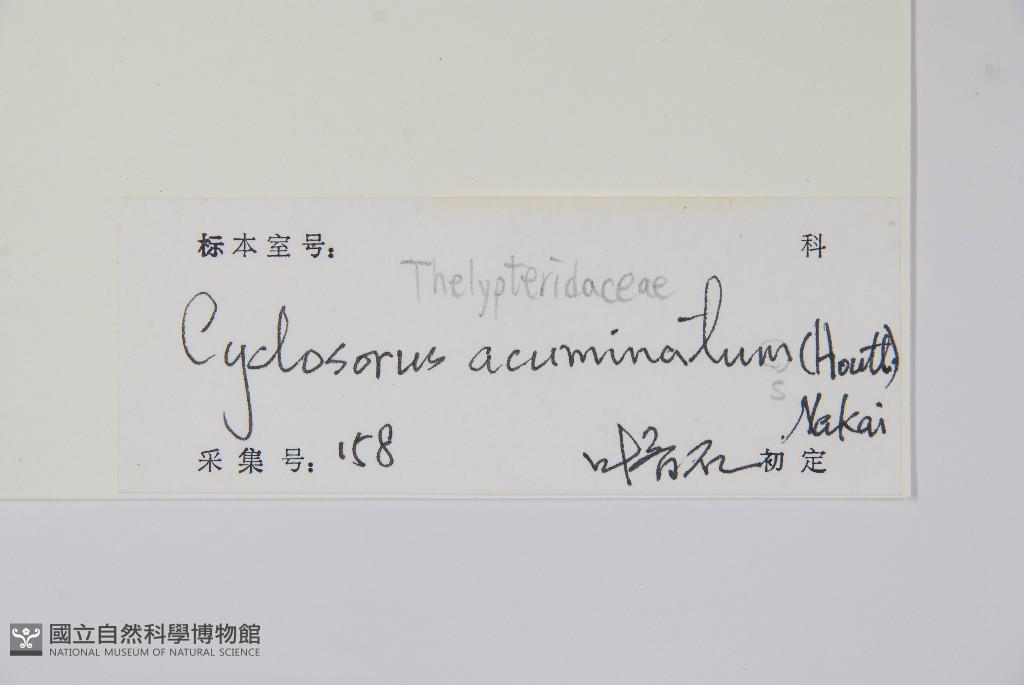 标本室号： 科
Thelypteridaceae
Cyclosorus acuminatum (Houtt.)
s
Nakai
采集号： 158 初定
國立自然科學博物館
NATIONAL MUSEUM OF NATURAL SCIENCE